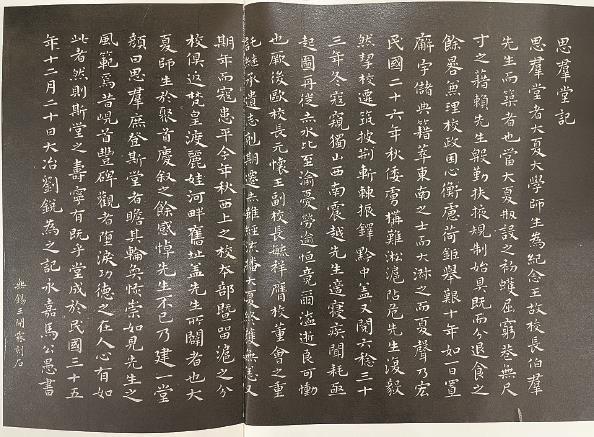 思羣堂記
思羣堂者大夏大學師生為紀念王故校長伯羣
先生而築者也當大夏刱設之初蠖屈窮巷無尺
寸之藉賴先生殷勤扶掖規制始具既而分退食之
餘晷兼理校政困心衡慮荷鉅舉艱十年如一日置
廨宇儲典籍萃東南之士而大淑之而夏聲乃宏
民國二十六年秋倭虜構難淞滬阽危先生復毅
然挈校遷筑披荆斬棘振鐸黔中蓋又閱六稔三十
三年冬寇窺獨山西南震越先生適寢疾聞耗亟
起圖再徙赤水比至渝憂勞逾恒竟爾溘逝良可慟
也厥後歐校長元懷王副校長毓祥膺校董會之重
託繼承遺志刻期遷赤雖經法播大夏終獲無恙又
期年而寇患平今年秋西上之校本部暨留滬之分
校俱返梵皇渡麗娃河畔舊址蓋先生所闢者也大
夏師生於聚首慶叙之餘感悼先生不已乃建一堂
顏曰思羣庶登斯堂者瞻其輪奐恢崇如見先生之
風範焉昔峴首豐碑觀者墮淚功德之在人心有如
此者然則斯堂之壽寧有既乎堂成於民國三十五
年十二月二十日大冶劉銳為之記永嘉馬公愚書
無錫王開霖刻石